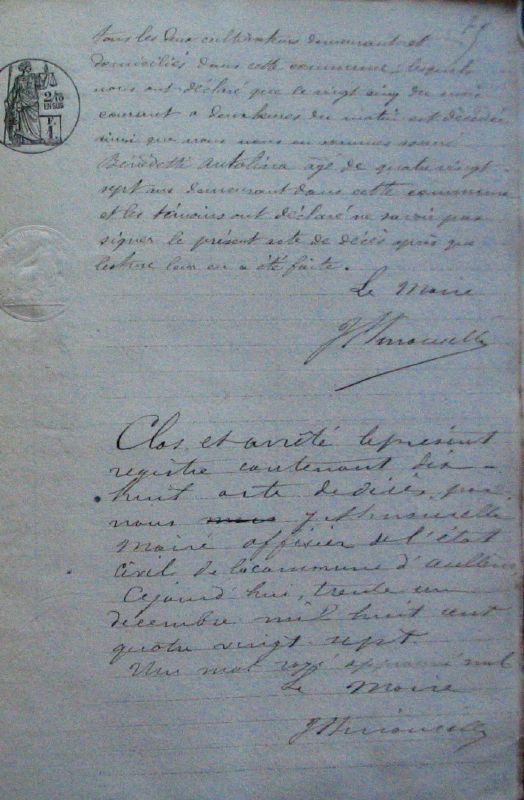 tous les deux cultivateurs demeurant et
domiciliés dans cette commune, lesquels
nous ont déclaré que le vingt cinq du mois
courant a deux heures du matin est décédée
ainsi que nous nous en sommes assuré
Bénédetti Antolina age de quatre vingt
sept ans demeurant dans cette commune
et les témoins ont déclaré ne savoir pas
signer le présent acte de décès après que
lecture leur en a été faite.
Le Maire
Clos et arrêté le présent
registre contenant dix
huit acte de décès, par
nous
Maire officier de l'état
civil de la commune d'aullène
Cejourd'hui, trente un
decembre mil huit cent
quatre vingt sept.
Un mot rayé approuvé nul
Le Maire